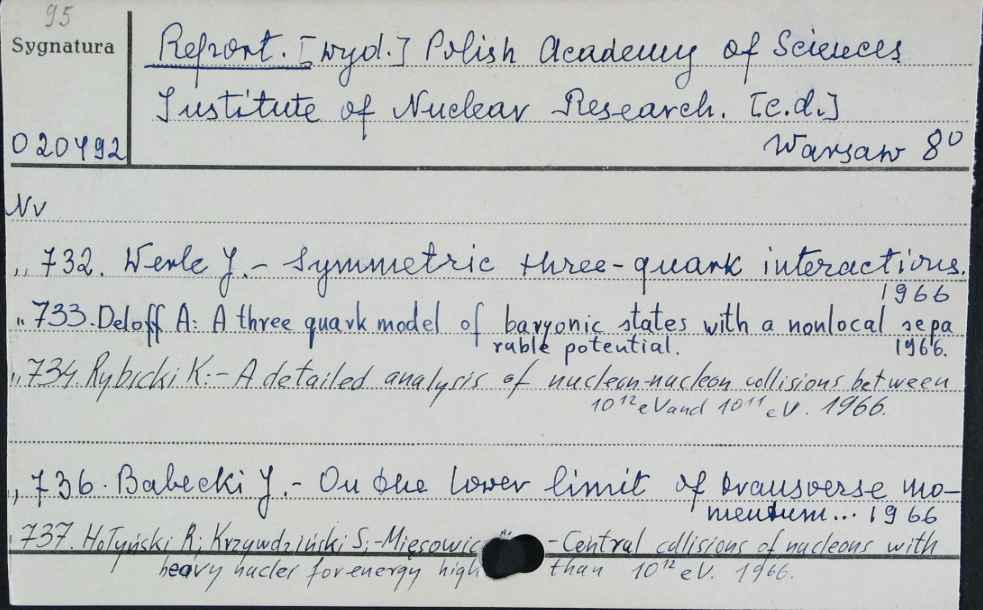 95
Sygnatura
Report. [wyd.] Polish Academy of Sciences
Institute of Nuclear Research. [c.d.]
020492
Warsaw 8⁰
Nv
„ 732. Werle J.- Symmetric three-quark interactions.
1966
„ 733. Deloff A: A three quark model of baryonic states with a nonlocal sepa
rable potential. 1966.
„ 734. Rybicki K:- A detailed analysis of nucleon-nucleon collisions between
10¹² eV and 10¹¹ eV. 1966.
„ 736. Babecki J.- On the lower limit of transverse mo-
mentum... 1966
„ 737. Hołyński R; Krzywdziński S;-Mięsowic - Central collisions of nucleons with
heavy nuclei for energy high than 10¹² eV. 1966.